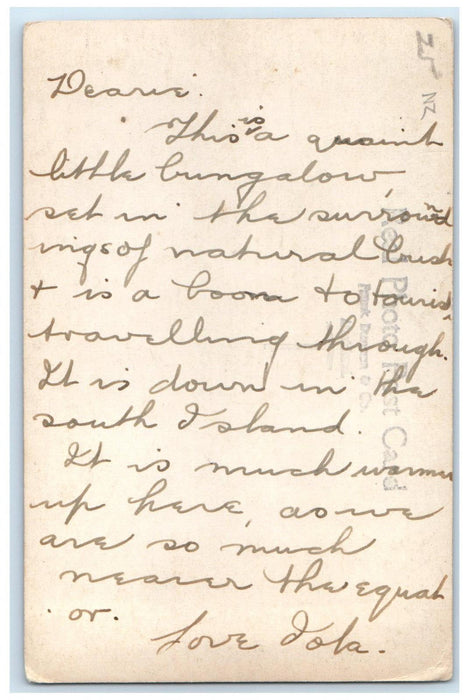 Dearie.
This is a quaint
little bungalow,
set in the surround
ings of natural bush
+ is a boon to tourists
travelling through.
It is down in the
south Island.
It is much warmer
up here, as we
are so much
nearer the equat
or.
Love Iola.
NZ
Real Photo Post Card